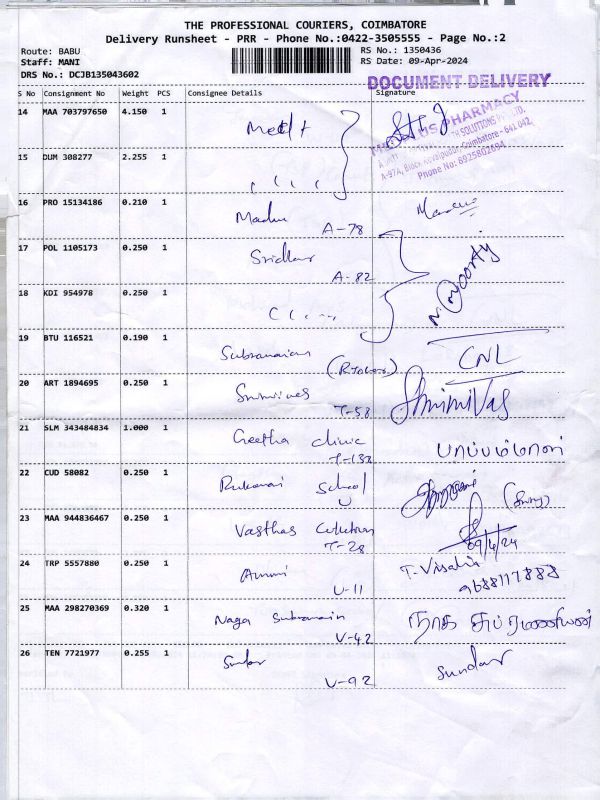 THE PROFESSIONAL COURIERS, COIMBATORE
Delivery Runsheet - PRR - Phone No.:0422-3505555 - Page No.:2
Route: BABU
RS No.: 1350436
Staff: MANI
RS Date: 09-Apr-2024
DRS No.: DCJB135043602
DOCUMENT DELIVERY
S No Consignment No Weight PCS Consignee Details Signature
14 MAA 703797650 4.150 1
PHARMACY
SOLUTIONS
Coimbatore - 641 042
Phone No: 8925802694
15 DUM 308277 2.255 1
16 PRO 15134186 0.210 1 Madhu
A-78
17 POL 1105173 0.250 1 Sridhar
A-82
18 KDI 954978 0.250 1
19 BTU 116521 0.190 1 Subramaniam
CNL
20 ART 1894695 0.250 1 Srinivas
T-58
21 SLM 343484834 1.000 1 Geetha clinic
T-133
22 CUD 58082 0.250 1 School
U
23 MAA 944836467 0.250 1 Vasthas Collection
T-28
09/4/24
24 TRP 5557880 0.250 1 Ammi T. Visalia
U-11 9688117888
25 MAA 298270369 0.320 1 Naga Subramain நாக சுப்ரமணியன்
U-42
26 TEN 7721977 0.255 1 Sundar Sundar
U-92